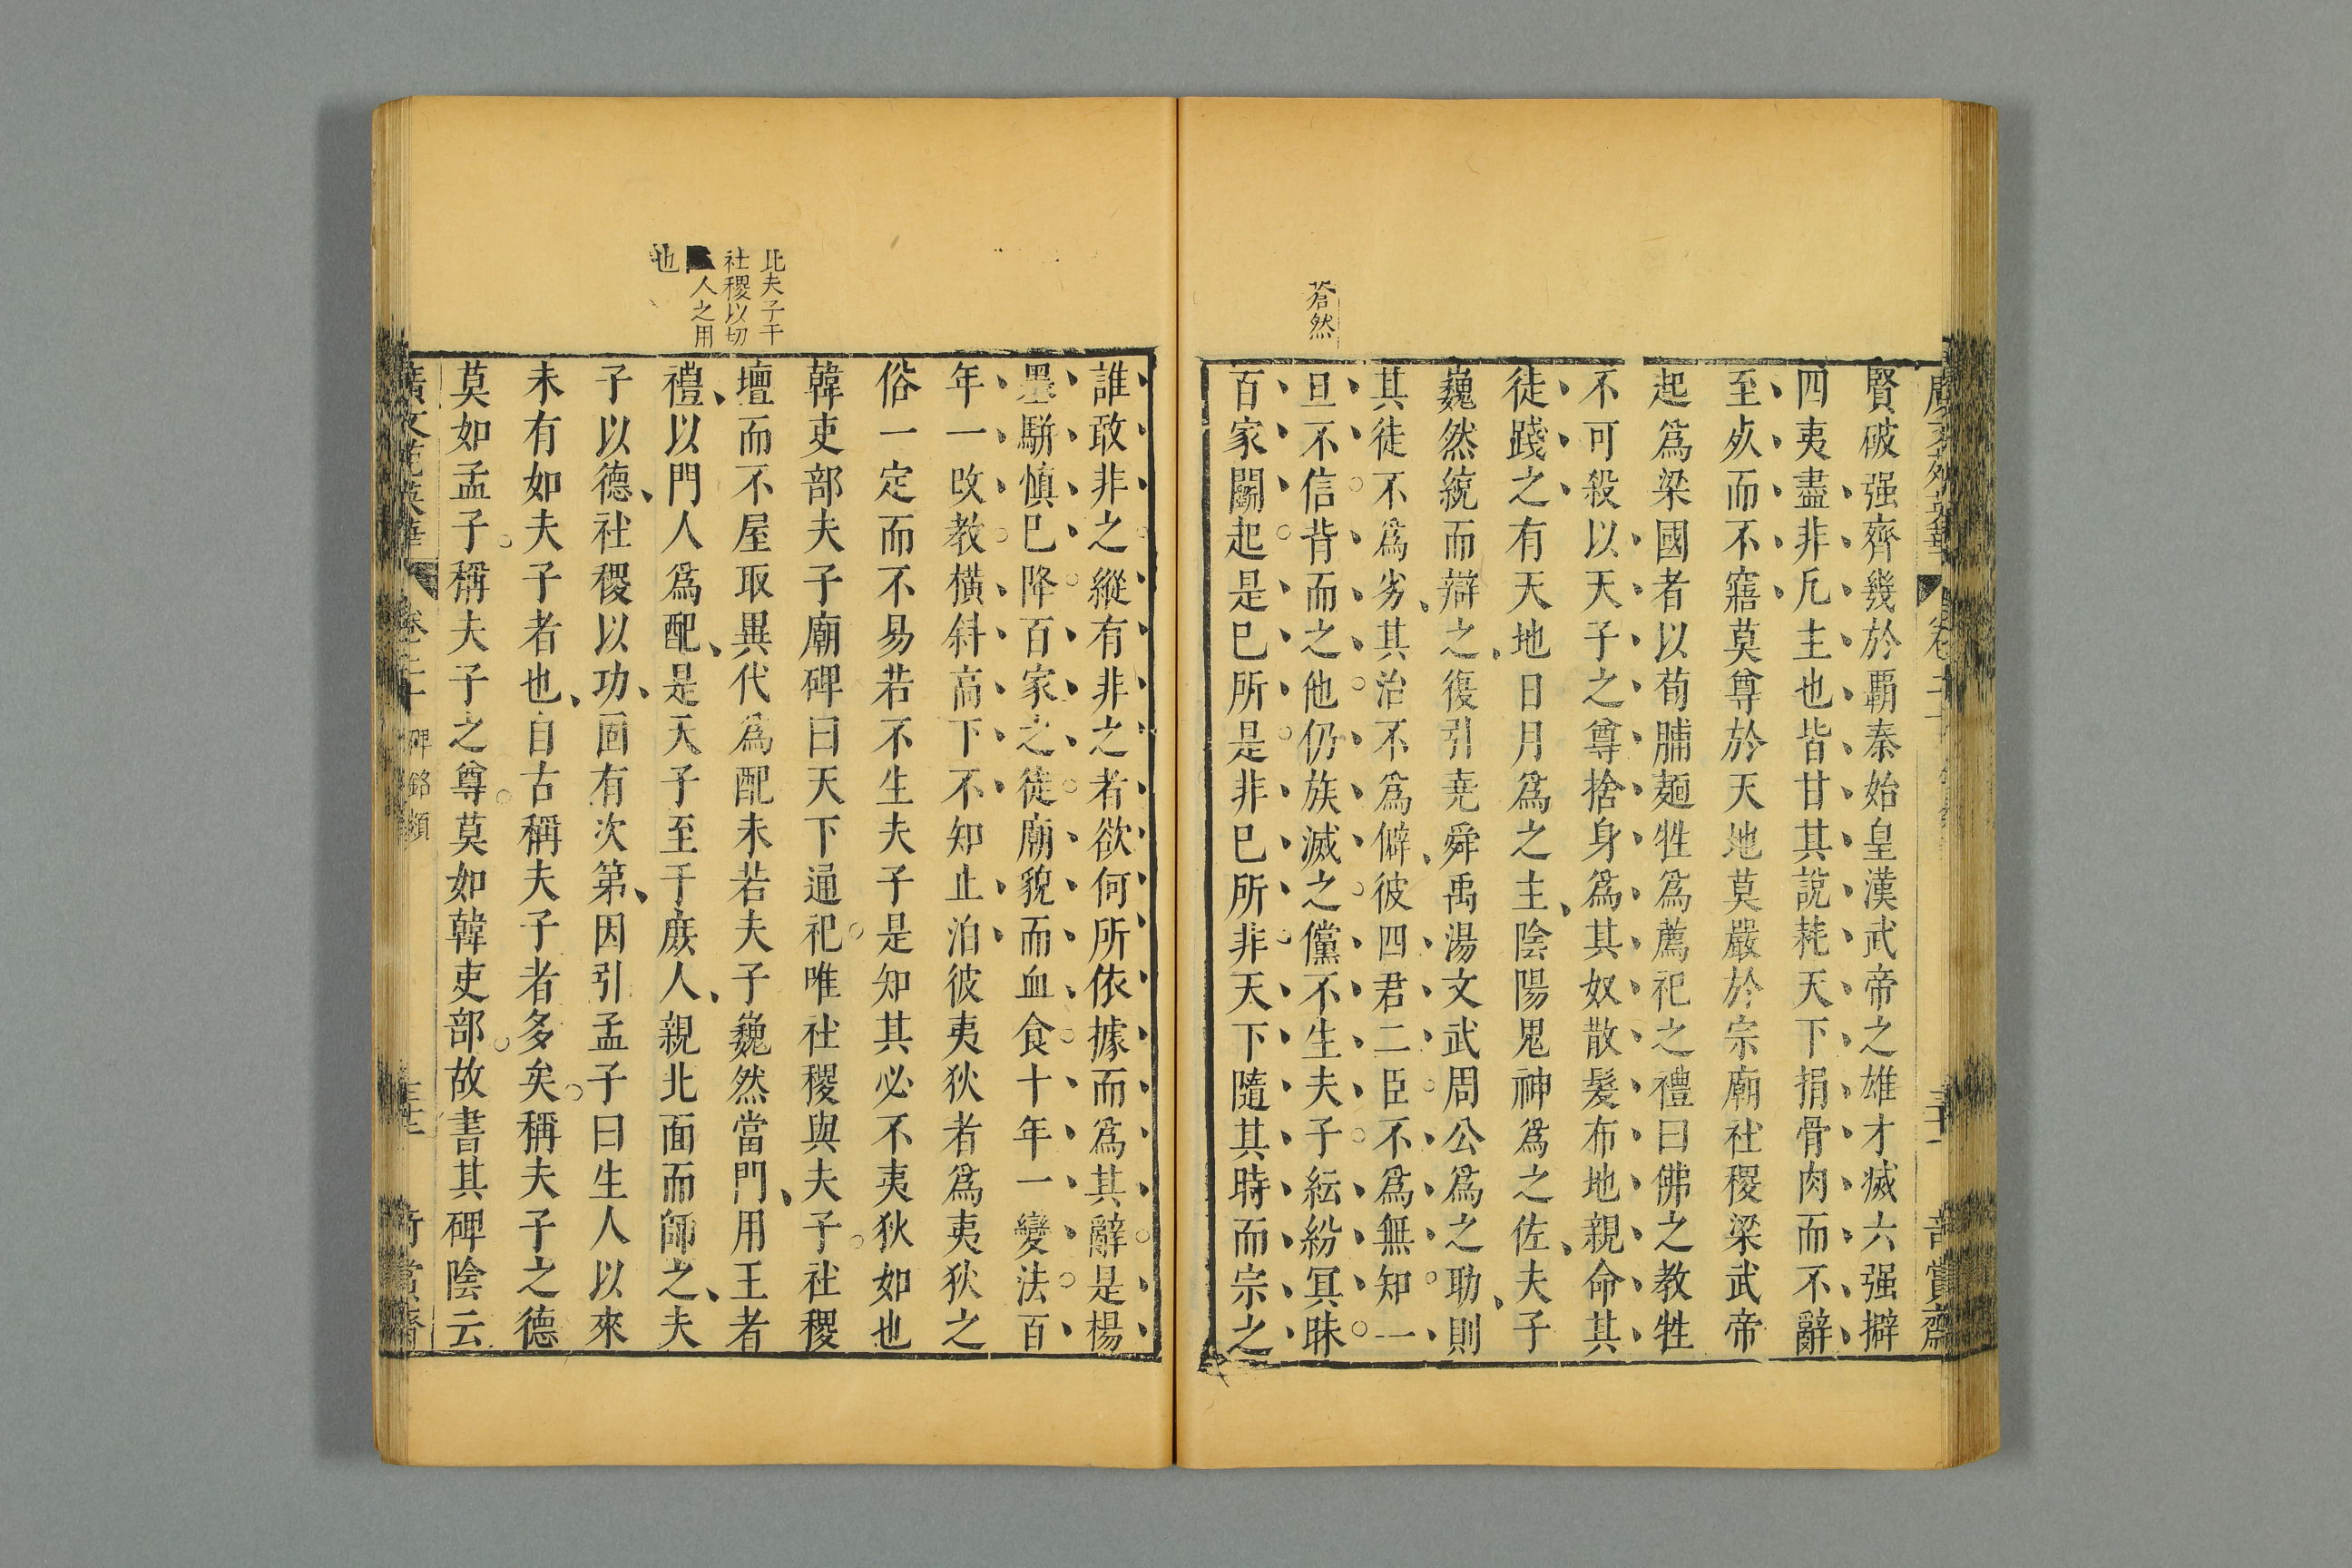 賢破强齊幾於霸秦始皇漢武帝之雄才滅六强擗
四夷盡非凡主也皆甘其說耗天下捐骨肉而不辭
至㱙而不寤莫尊於天地莫嚴於宗廟社稷梁武帝
起爲梁國者以荀脯麵牲爲薦祀之禮曰佛之教牲
不可殺以天子之尊捨身爲其奴散髮布地親命其
徒踐之有天地日月爲之主陰陽鬼神爲之佐夫子
巍然統而辯之復引堯舜禹湯文武周公爲之助則
其徒不爲劣其治不爲僻彼四君二臣不爲無知一
蒼然
旦不信背而之他仍族滅之儻不生夫子紜紛冥昧
百家鬭起是已所是非已所非天下隨其時而宗之
誰敢非之縱有非之者欲何所依據而爲其辭是楊
墨駢慎已降百家之徒廟貌而血食十年一變法百
年一改教橫斜高下不知止泊彼夷狄者爲夷狄之
俗一定而不易若不生夫子是知其必不夷狄如也
韓吏部夫子廟碑曰天下通祀唯社稷與夫子社稷
此夫子干
社稷以切
人之用
也
壇而不屋取異代爲配未若夫子巍然當門用王者
禮以門人爲配是天子至于庶人親北面而師之夫
子以德社稷以功固有次第因引孟子曰生人以來
未有如夫子者也自古稱夫子者多矣稱夫子之德
莫如孟子稱夫子之尊莫如韓吏部故書其碑陰云